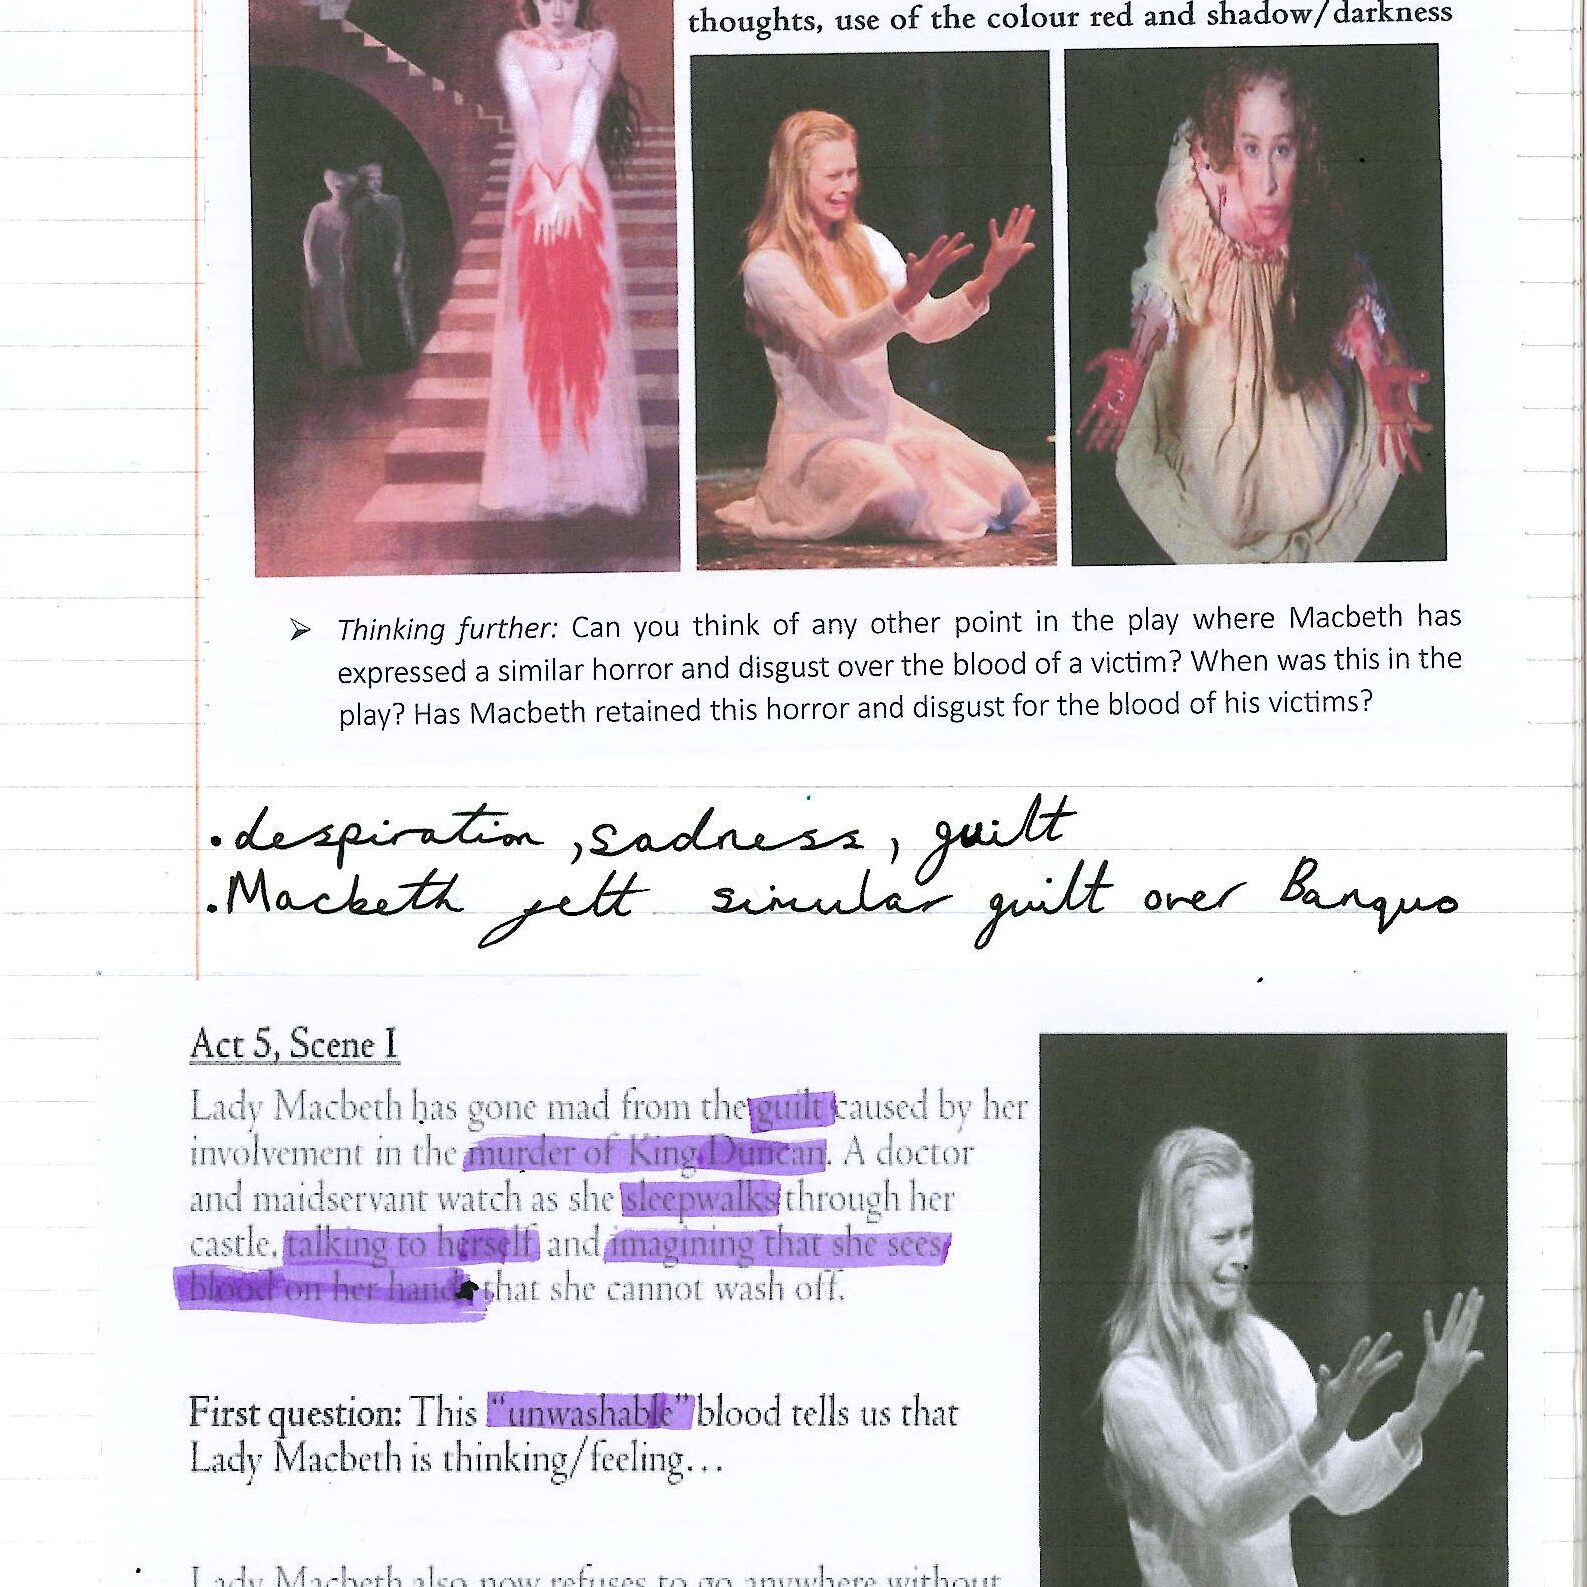 thoughts, use of the colour red and shadow/darkness
➢ Thinking further: Can you think of any other point in the play where Macbeth has
expressed a similar horror and disgust over the blood of a victim? When was this in the
play? Has Macbeth retained this horror and disgust for the blood of his victims?
. despiration, sadness, guilt
. Macbeth felt simular guilt over Banquo
Act 5, Scene I
Lady Macbeth has gone mad from the guilt caused by her
involvement in the murder of King Duncan. A doctor
and maidservant watch as she sleepwalks through her
castle, talking to herself and imagining that she sees
blood on her hands that she cannot wash off.
First question: This “unwashable” blood tells us that
Lady Macbeth is thinking/feeling…
Lady Macbeth also now refuses to go anywhere without